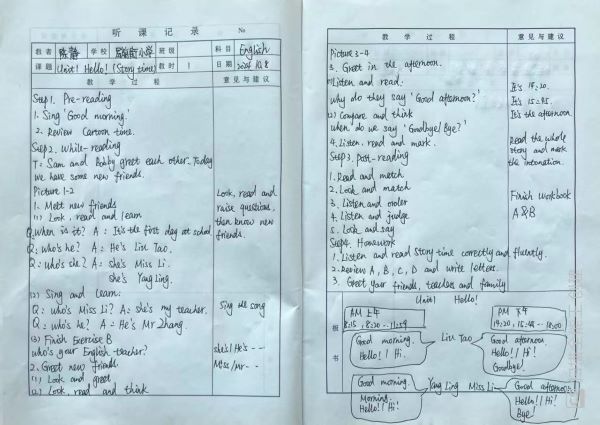 听 课 记 录 No
教者 陈静 学校 小学 班级 科目 English
课题 Unit1 Hello! (Story time) 教时 1 日期 2024.10.8
教 学 过 程 意见与建议
Step1. Pre-reading
1. Sing 'Good morning.'
2. Review Cartoon time.
Step2. While-reading
T: Sam and Bobby greet each other. Today
we have some new friends.
Picture 1-2
1. Meet new friends
(1) Look, read and learn
Q: When is it? A: It's the first day at school.
Q: Who's he? A: He's Liu Tao.
Q: Who's she? A: She's Miss Li.
She's Yang Ling.
(2) Sing and learn:
Q: Who's Miss Li? A: She's my teacher.
Q: Who's he? A: He's Mr Zhang.
(3) Finish Exercise B
Who's your English teacher?
2. Greet new friends.
(1) Look and greet
(2) Look, read and think
Look, read and
raise questions,
then know new
friends.
Sing the song
She's / He's - -
Miss / Mr - -
教 学 过 程 意见与建议
Picture 3-4
3. Greet in the afternoon.
(1) Listen and read.
Why do they say 'Good afternoon?'
(2) Compare and think
When do we say 'Goodbye / Bye?'
4. Listen, read and mark.
Step3. Post-reading
1. Read and match
2. Look and match
3. Listen and order
4. Listen and judge
5. Look and say
Step4. Homework
1. Listen and read Story time correctly and fluently.
2. Review A, B, C, D and write letters.
3. Greet your friends, teachers and family
It's 14:20.
It's 15:45.
It's the afternoon.
Read the whole
story and mark
the intonation.
Finish workbook
A & B
板书
Unit1 Hello!
AM 上午
8:15, 8:20 -- 11:59
PM 下午
14:20, 15:45 -- 18:00
Good morning.
Hello! / Hi.
Liu Tao
Good afternoon.
Hello! / Hi!
Goodbye!
Good morning.
Morning.
Hello! / Hi!
Yang Ling Miss Li
Good afternoon!
Hello! / Hi!
Bye!